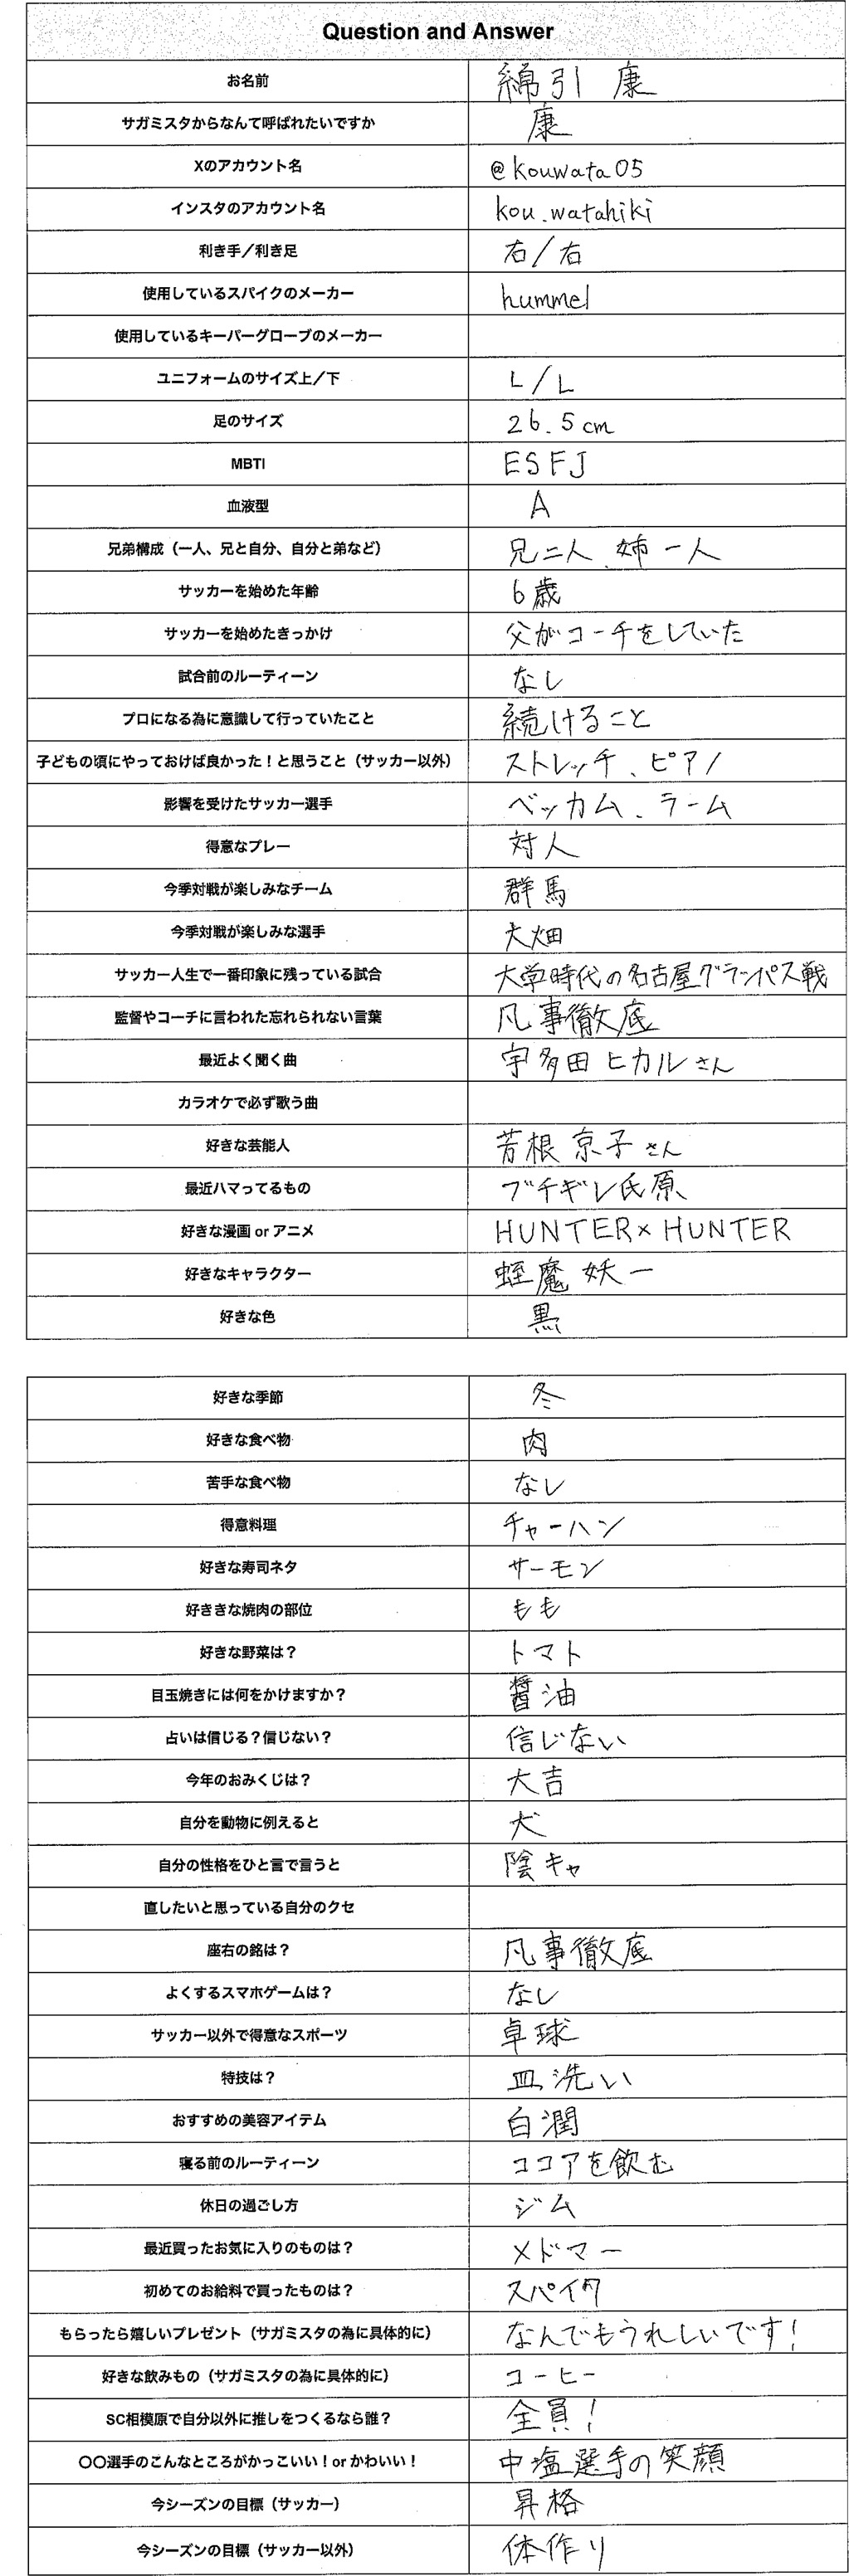 Question and Answer
お名前 綿引 康
サガミスタからなんて呼ばれたいですか 康
Xのアカウント名 @kouwata05
インスタのアカウント名 kou.watahiki
利き手／利き足 右／右
使用しているスパイクのメーカー hummel
使用しているキーパーグローブのメーカー
ユニフォームのサイズ上／下 L／L
足のサイズ 26.5cm
MBTI ESFJ
血液型 A
兄弟構成（一人、兄と自分、自分と弟など） 兄二人、姉一人
サッカーを始めた年齢 6歳
サッカーを始めたきっかけ 父がコーチをしていた
試合前のルーティーン なし
プロになる為に意識して行っていたこと 続けること
子どもの頃にやっておけば良かった！と思うこと（サッカー以外） ストレッチ、ピアノ
影響を受けたサッカー選手 ベッカム、ラーム
得意なプレー 対人
今季対戦が楽しみなチーム 群馬
今季対戦が楽しみな選手 大畑
サッカー人生で一番印象に残っている試合 大学時代の名古屋グランパス戦
監督やコーチに言われた忘れられない言葉 凡事徹底
最近よく聞く曲 宇多田ヒカルさん
カラオケで必ず歌う曲
好きな芸能人 芳根京子さん
最近ハマってるもの ブチギレ氏原
好きな漫画 or アニメ HUNTER×HUNTER
好きなキャラクター 蛭魔妖一
好きな色 黒
好きな季節 冬
好きな食べ物 肉
苦手な食べ物 なし
得意料理 チャーハン
好きな寿司ネタ サーモン
好ききな焼肉の部位 もも
好きな野菜は？ トマト
目玉焼きには何をかけますか？ 醤油
占いは信じる？信じない？ 信じない
今年のおみくじは？ 大吉
自分を動物に例えると 犬
自分の性格をひと言で言うと 陰キャ
直したいと思っている自分のクセ
座右の銘は？ 凡事徹底
よくするスマホゲームは？ なし
サッカー以外で得意なスポーツ 卓球
特技は？ 皿洗い
おすすめの美容アイテム 白潤
寝る前のルーティーン ココアを飲む
休日の過ごし方 ジム
最近買ったお気に入りのものは？ メドマー
初めてのお給料で買ったものは？ スパイク
もらったら嬉しいプレゼント（サガミスタの為に具体的に） なんでもうれしいです！
好きな飲みもの（サガミスタの為に具体的に） コーヒー
SC相模原で自分以外に推しをつくるなら誰？ 全員！
〇〇選手のこんなところがかっこいい！or かわいい！ 中塩選手の笑顔
今シーズンの目標（サッカー） 昇格
今シーズンの目標（サッカー以外） 体作り